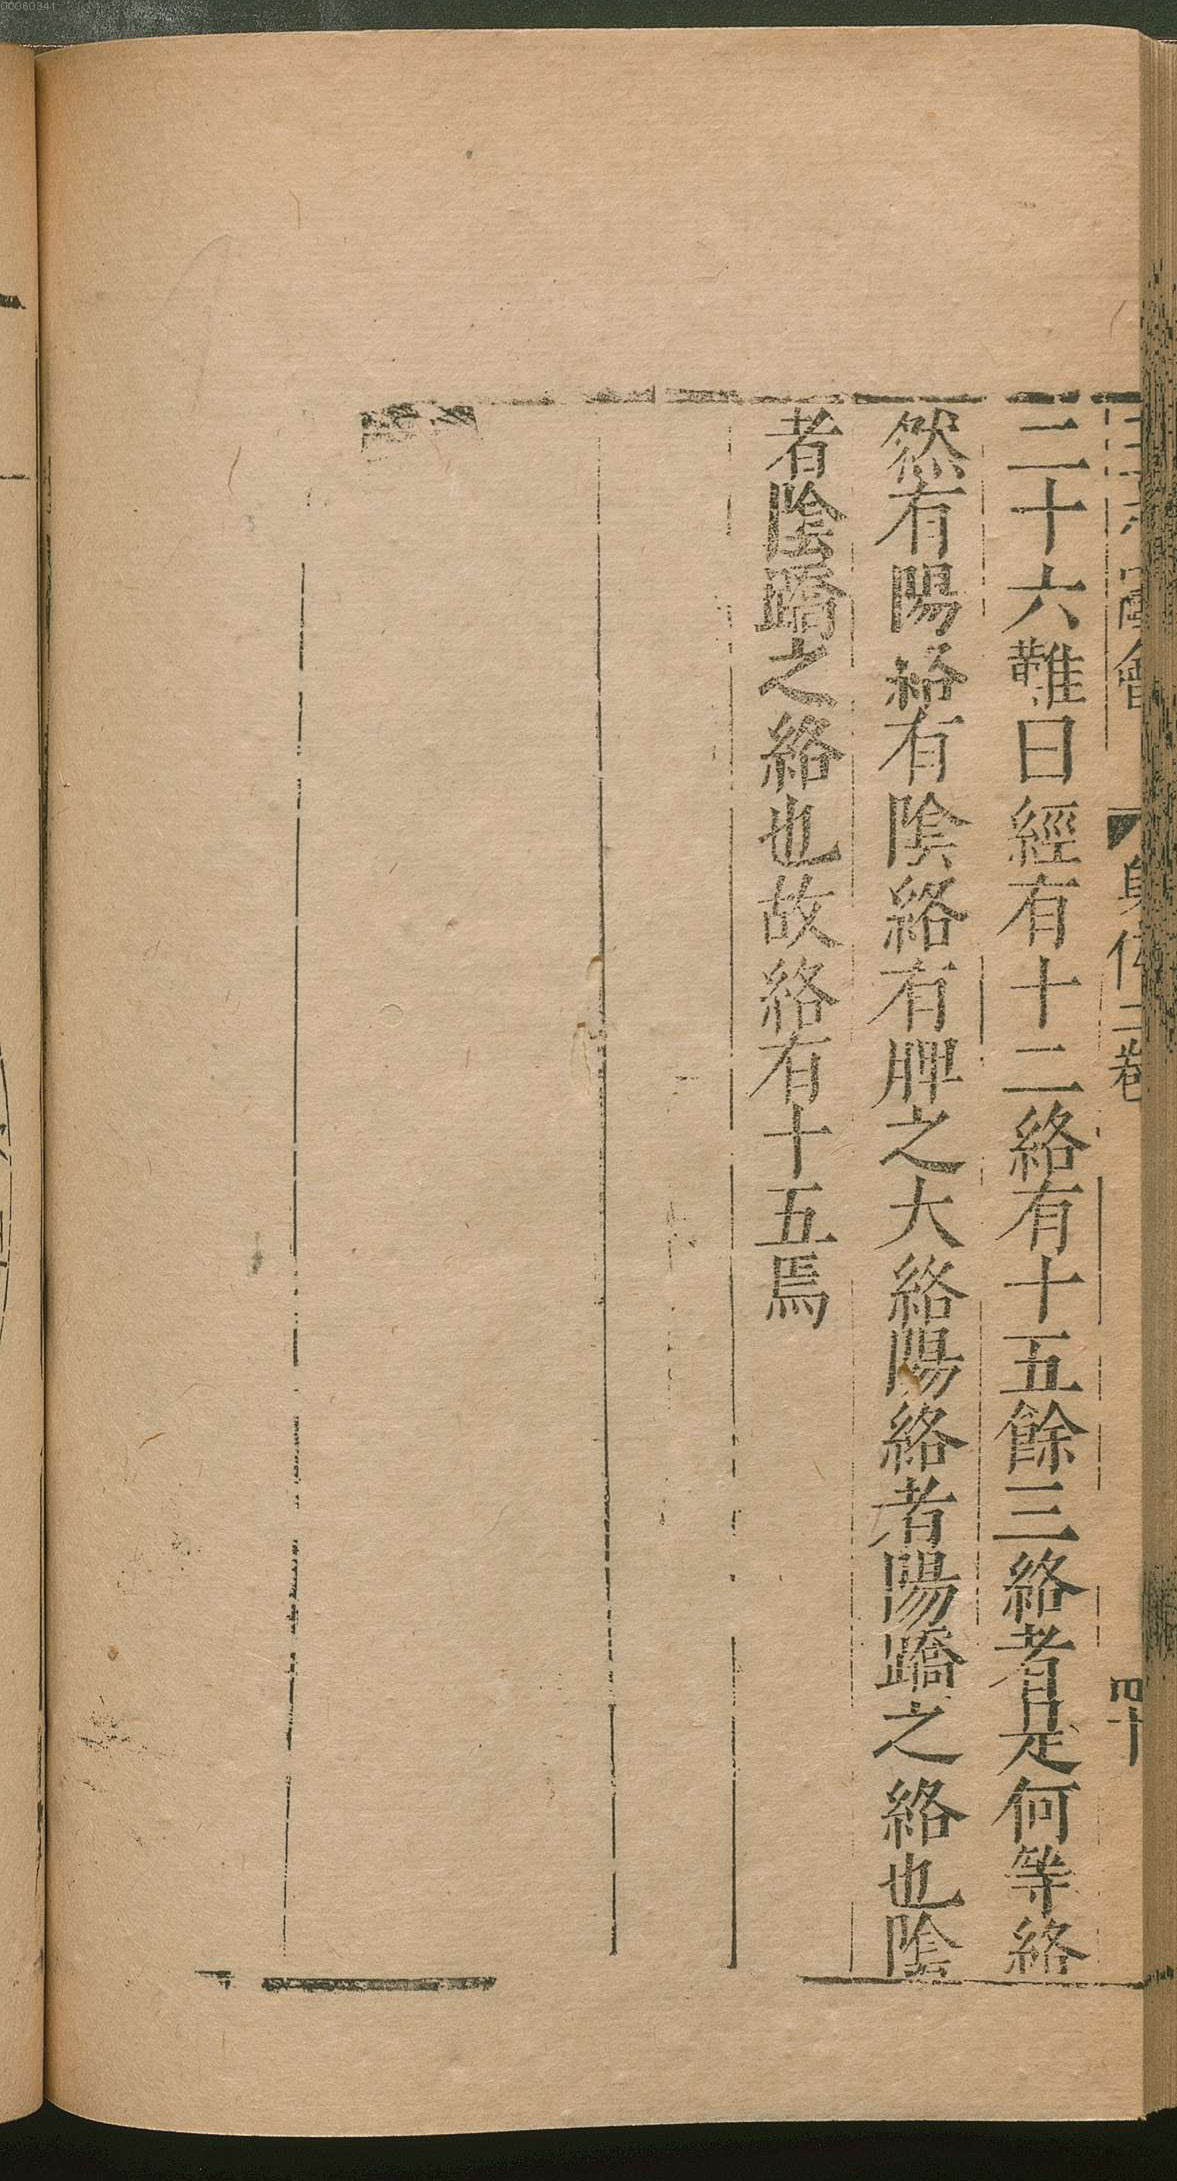 身体二卷
四十
二十六難曰經有十二絡有十五餘三絡者是何等絡
然有陽絡有陰絡有脾之大絡陽絡者陽蹻之絡也陰
者陰蹻之絡也故絡有十五焉
00060341